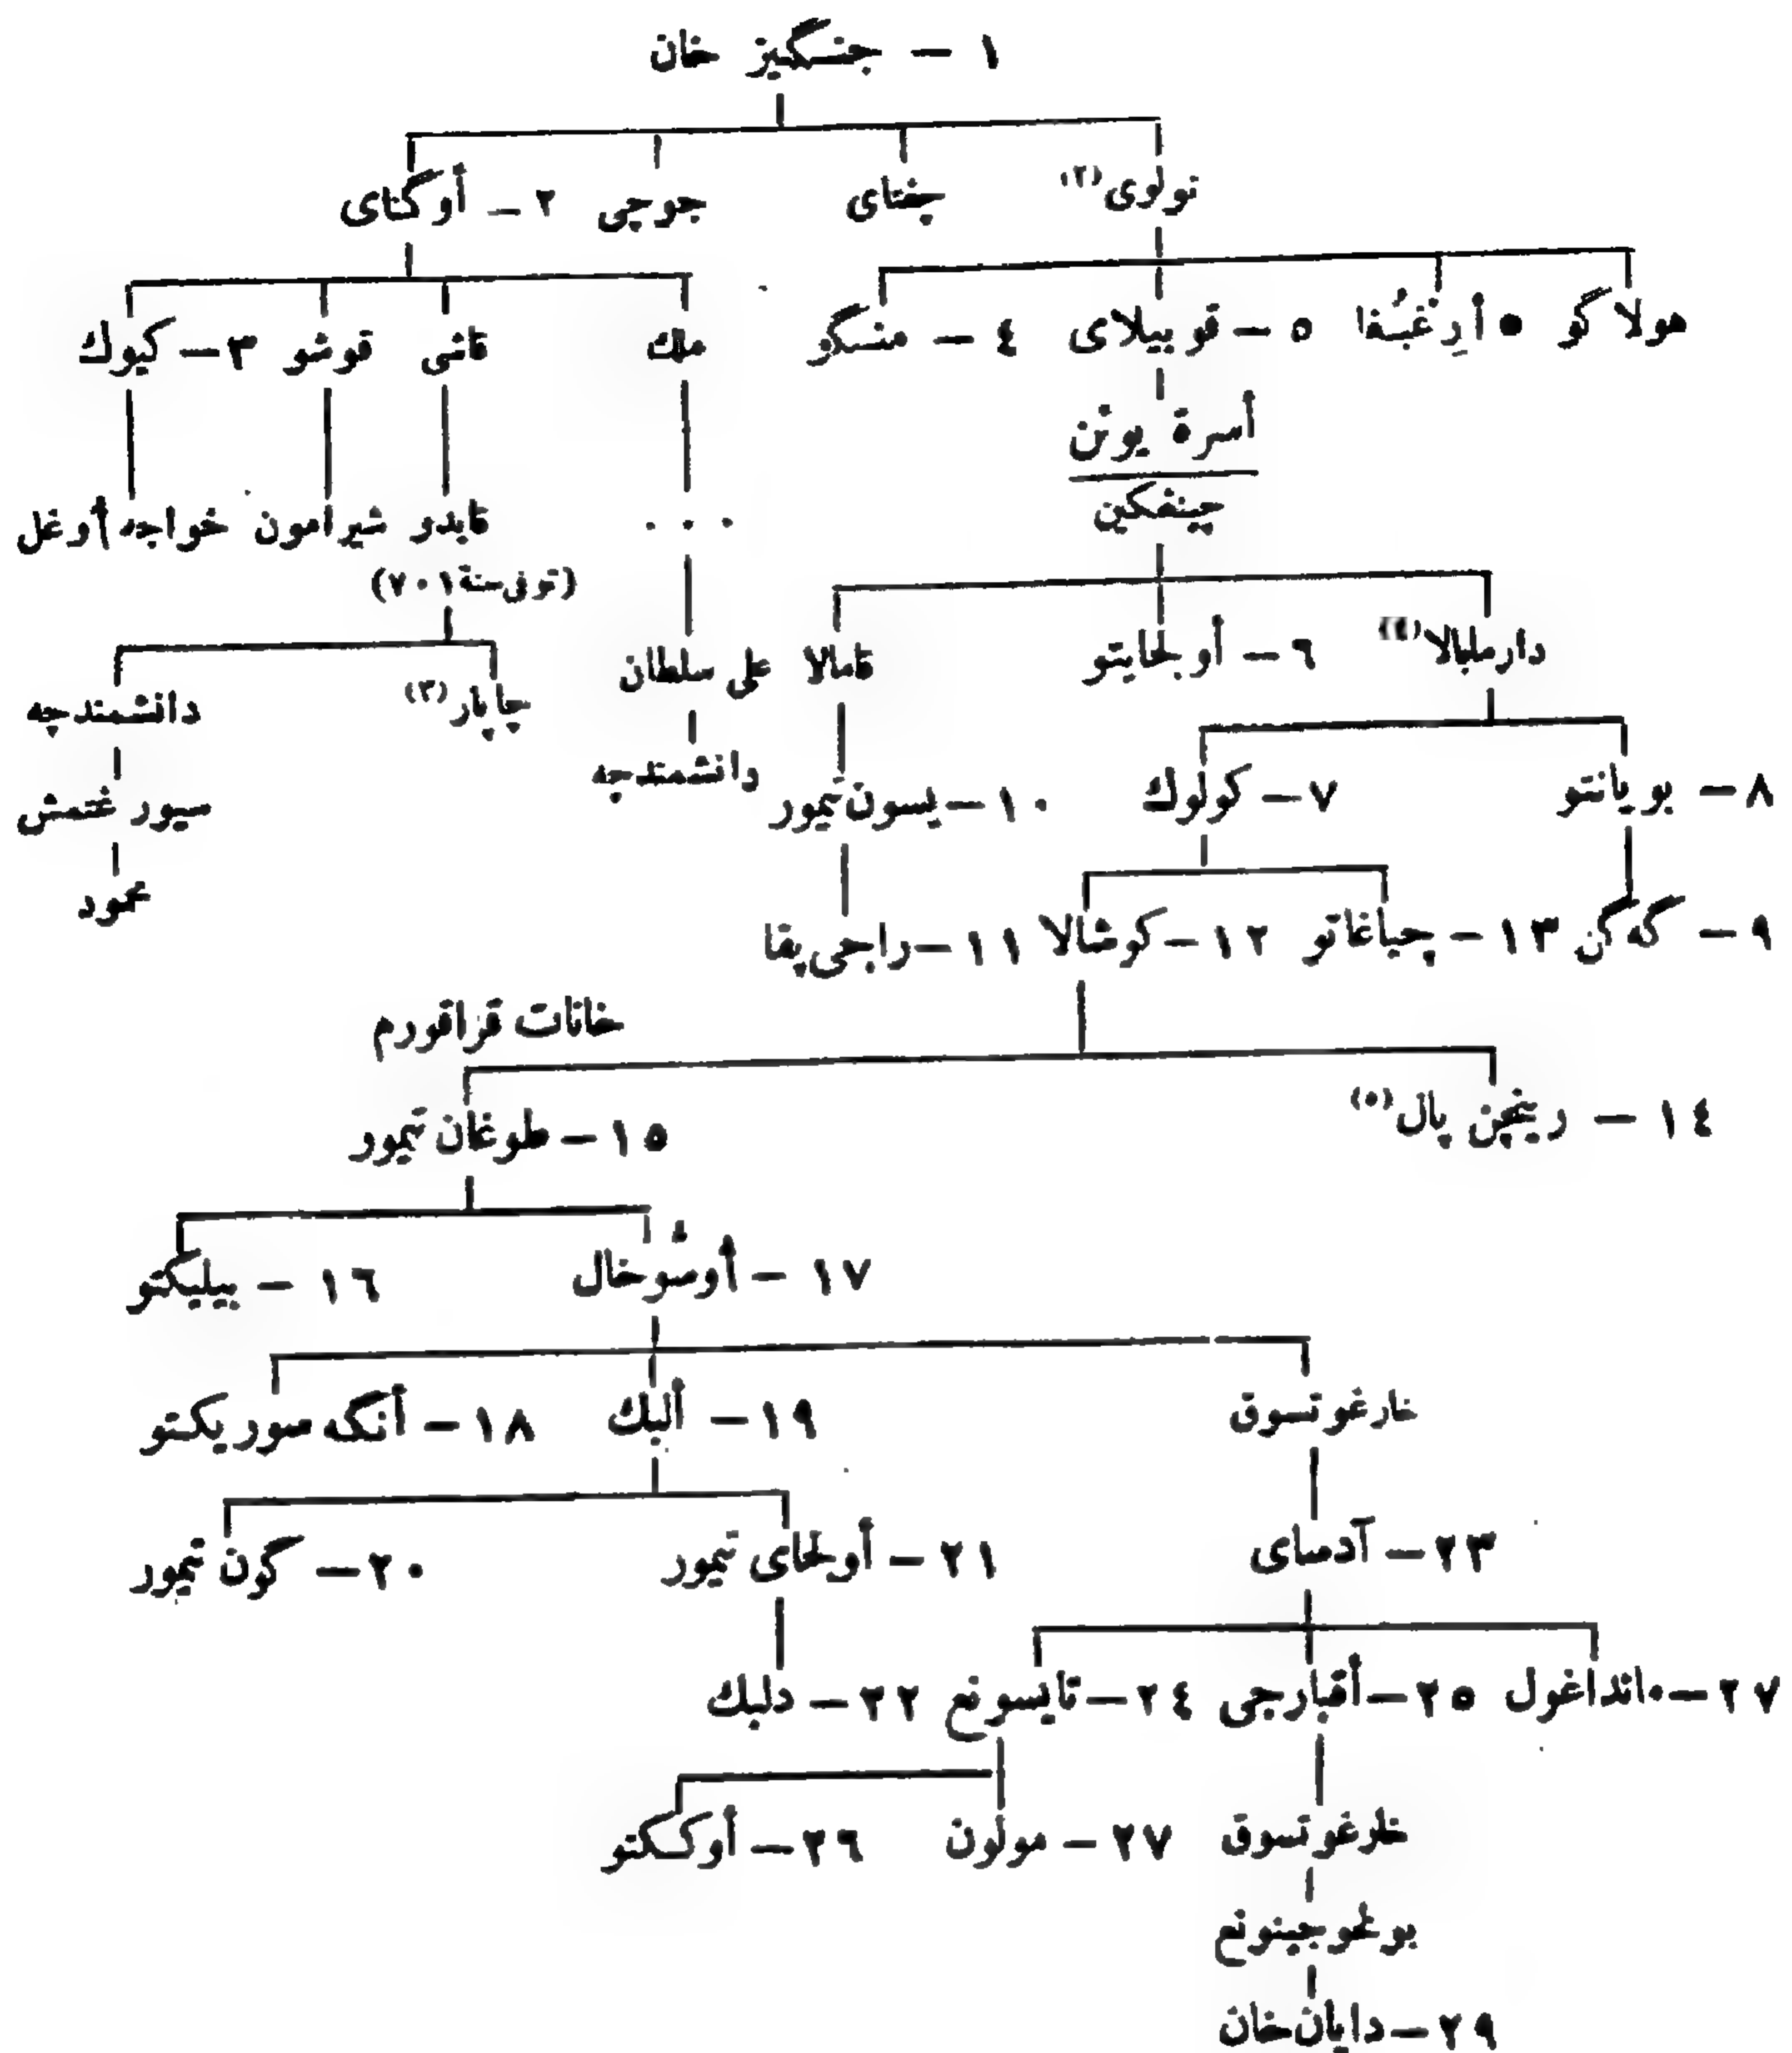 ١ – جنگيز خان
تولوى (٢) چغتاى جوچى ٢ – أوگتاى
هولاگو ● أرِغبُغا ٥ – قوبيلاى ٤ – منگو ملك قاشى قوشو ٣ – كيوك
أسرة يوئن
چينفكين
... قايدو شيرامون خواجه أوغل
(توفى سنة ٧٠١)
دارمابالا (٤) ٦ – أولجايتو قامالا على سلطان چاپار (٣) دانشمندجه
٨ – بويانتو ٧ – كولوك ١٠ – يسون تيمور دانشمندجه سيورغتمش
٩ – گەگن ١٣ – جياغاتو ١٢ – كوشالا ١١ – راجى پقا محمود
خانات قراقورم
١٤ – رينچن پال (٥) ١٥ – طوغان تيمور
١٧ – أوسُّوخال ١٦ – بيليكتو
خارغوتسوق ١٩ – ألبك ١٨ – أنگه سوريكتو
٢٣ – آدساى ٢١ – أولجاى تيمور ٢٠ – گون تيمور
٢٧ – مانداغول ٢٥ – أقبارجى ٢٤ – تايسونغ ٢٢ – دلبك
خارغوتسوق ٢٧ – مولون ٢٦ – أوككتو
بوغو جينونغ
٢٩ – دايان خان